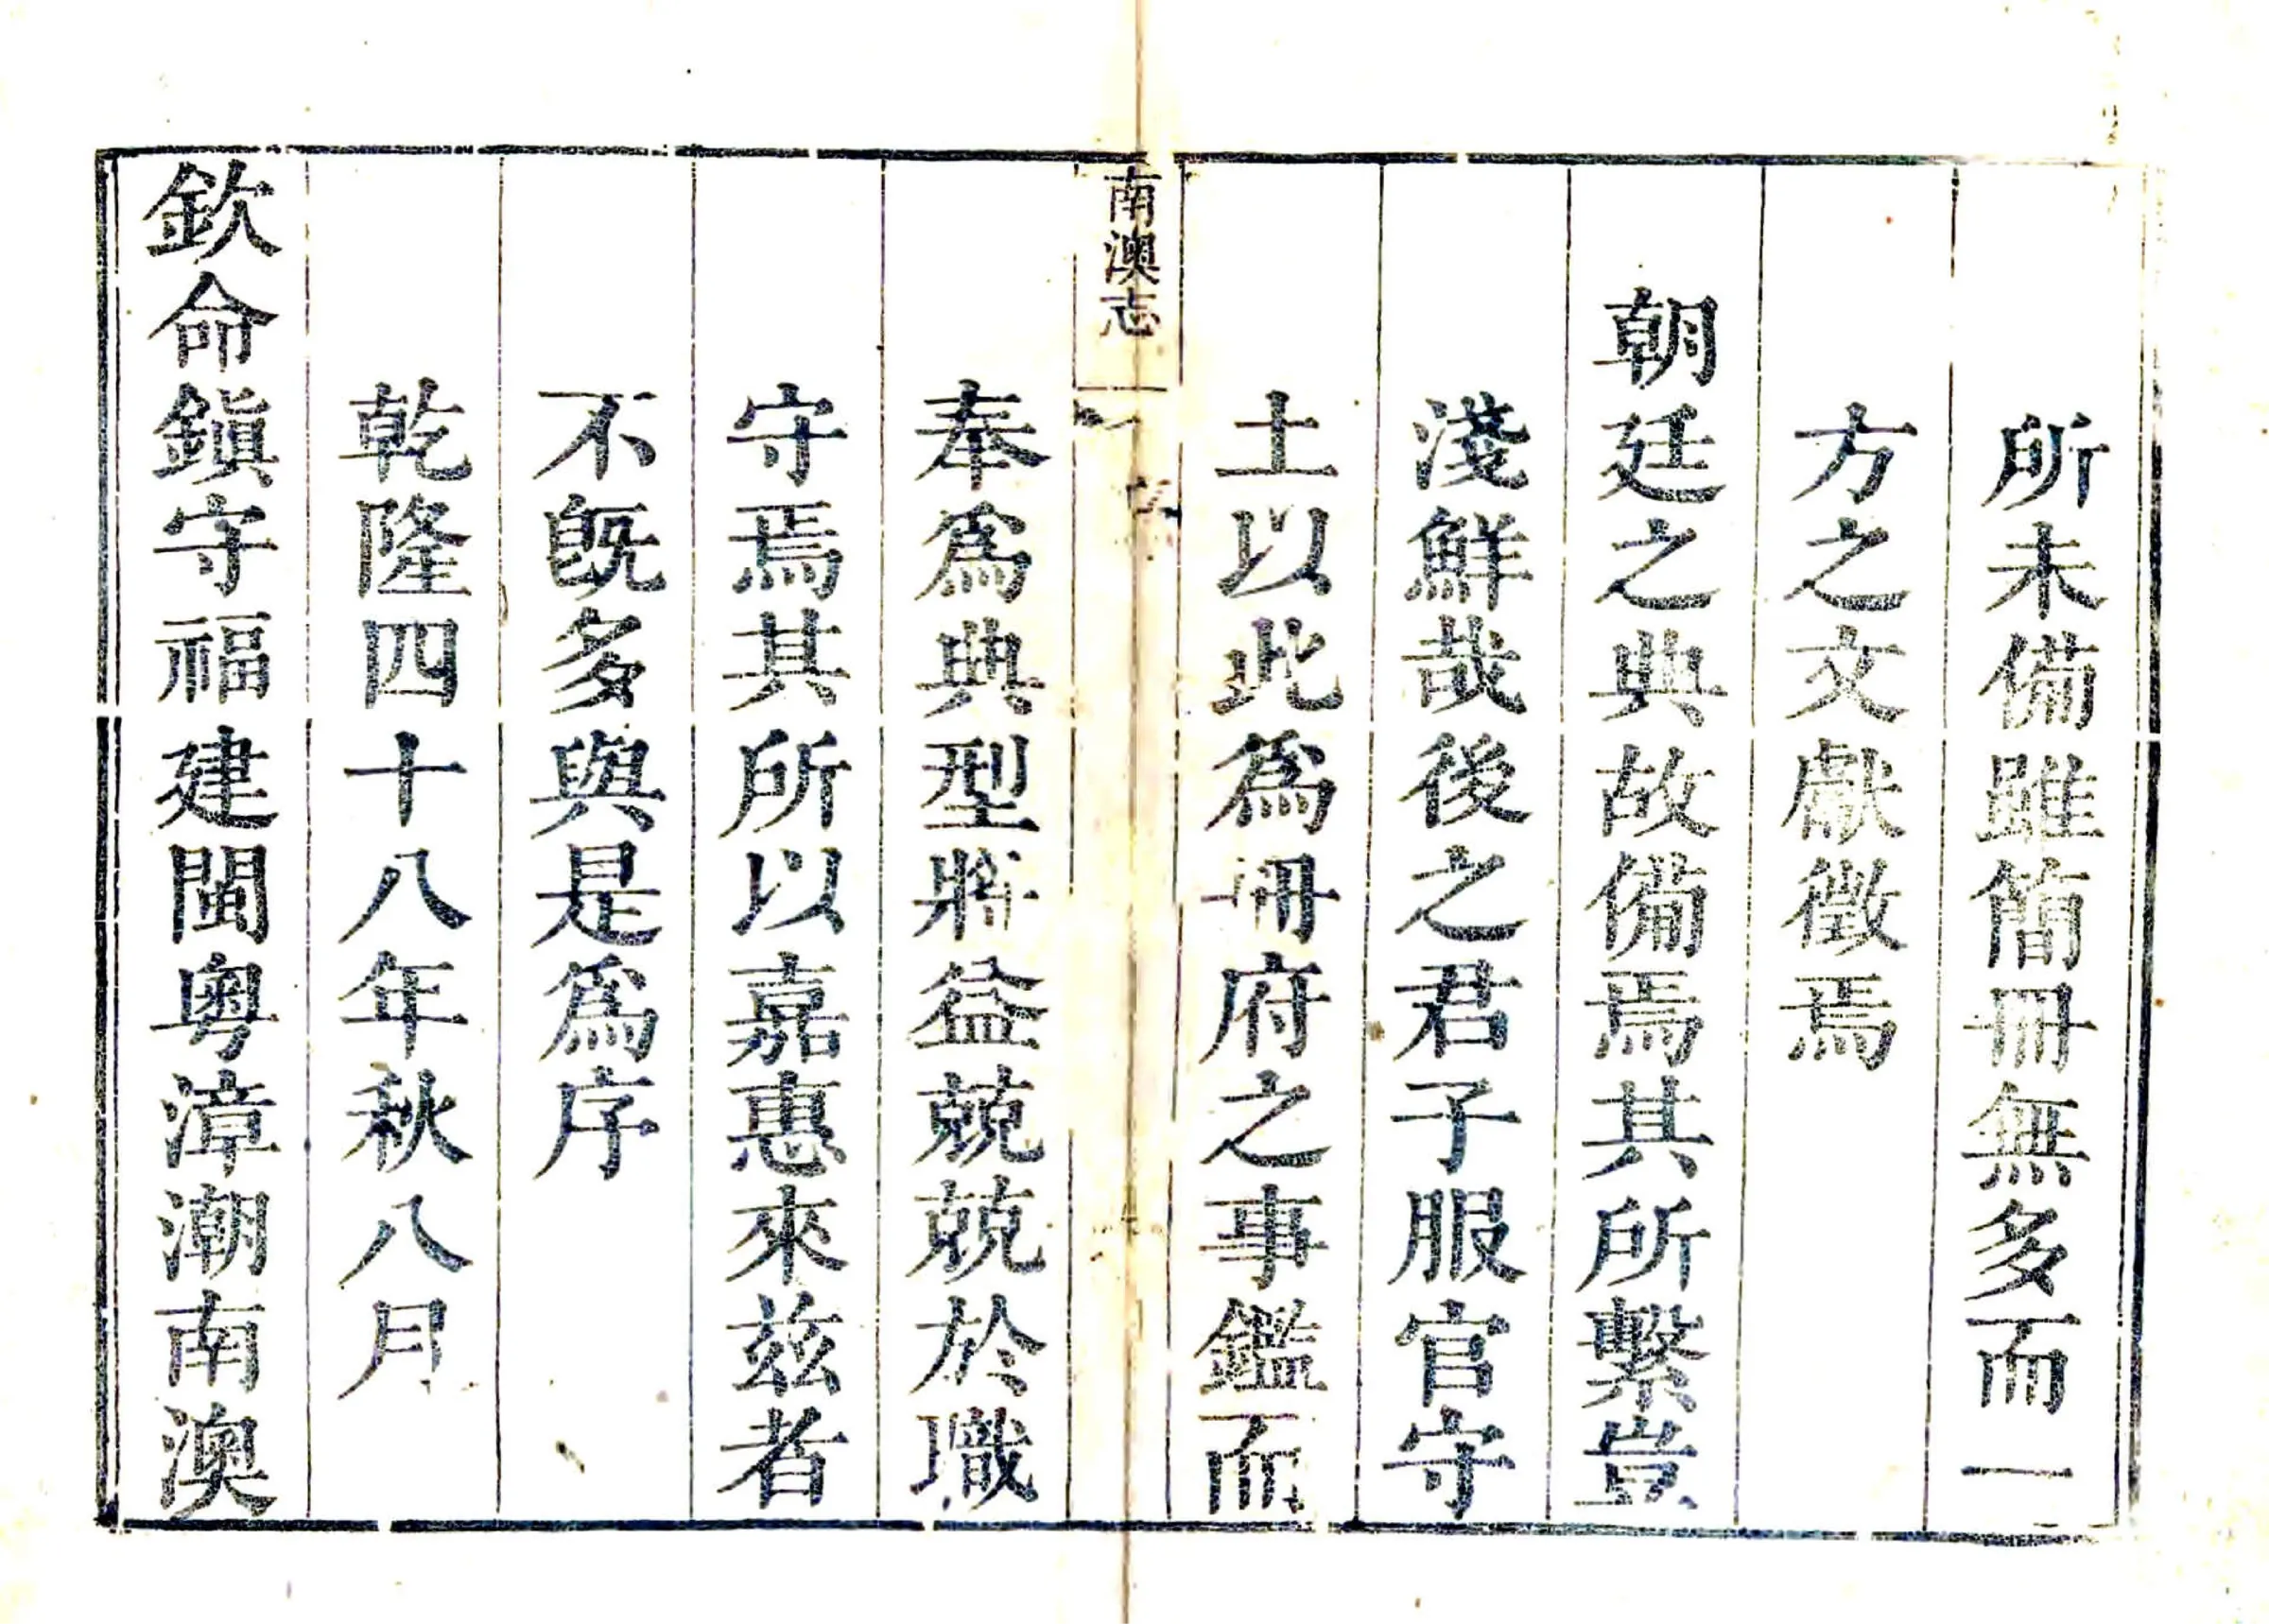 所未備雖簡冊無多而一
方之文獻徵焉
朝廷之典故備焉其所繫豈
淺鮮哉後之君子服官守
土以此為冊府之事鑑而
南澳志
序
奉為典型將益兢兢於職
守焉其所以嘉惠來茲者
不旣多與是為序
乾隆四十八年秋八月
欽命鎭守福建閩粵漳潮南澳